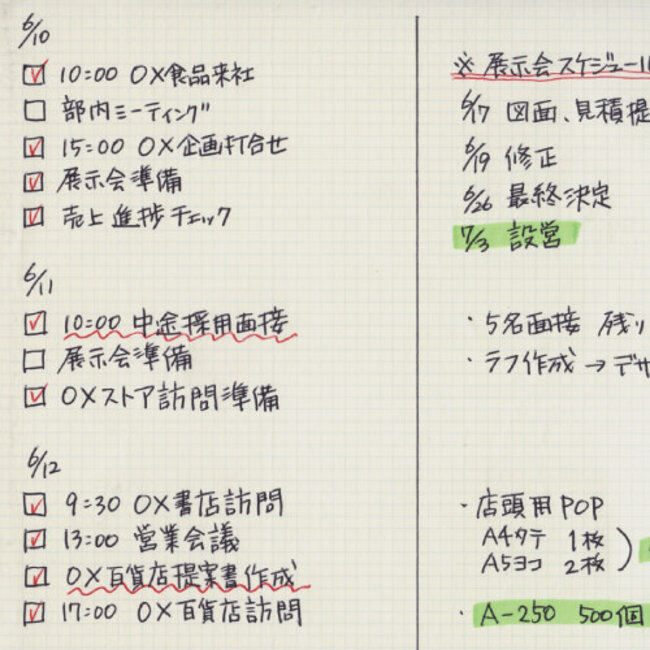 6/10
☑ 10:00 〇×食品来社
☐ 部内ミーティング
☑ 15:00 〇×企画打合せ
☑ 展示会準備
☑ 売上進捗チェック
6/11
☑ 10:00 中途採用面接
☐ 展示会準備
☑ 〇×ストア訪問準備
6/12
☑ 9:30 〇×書店訪問
☑ 13:00 営業会議
☑ 〇×百貨店提案書作成
☑ 17:00 〇×百貨店訪問
※ 展示会スケジュー
6/17 図面、見積提
6/19 修正
6/26 最終決定
7/3 設営
・5名面接 残り
・ラフ作成→デザ
・店頭用POP
A4タテ 1枚
A5ヨコ 2枚
・A-250 500個